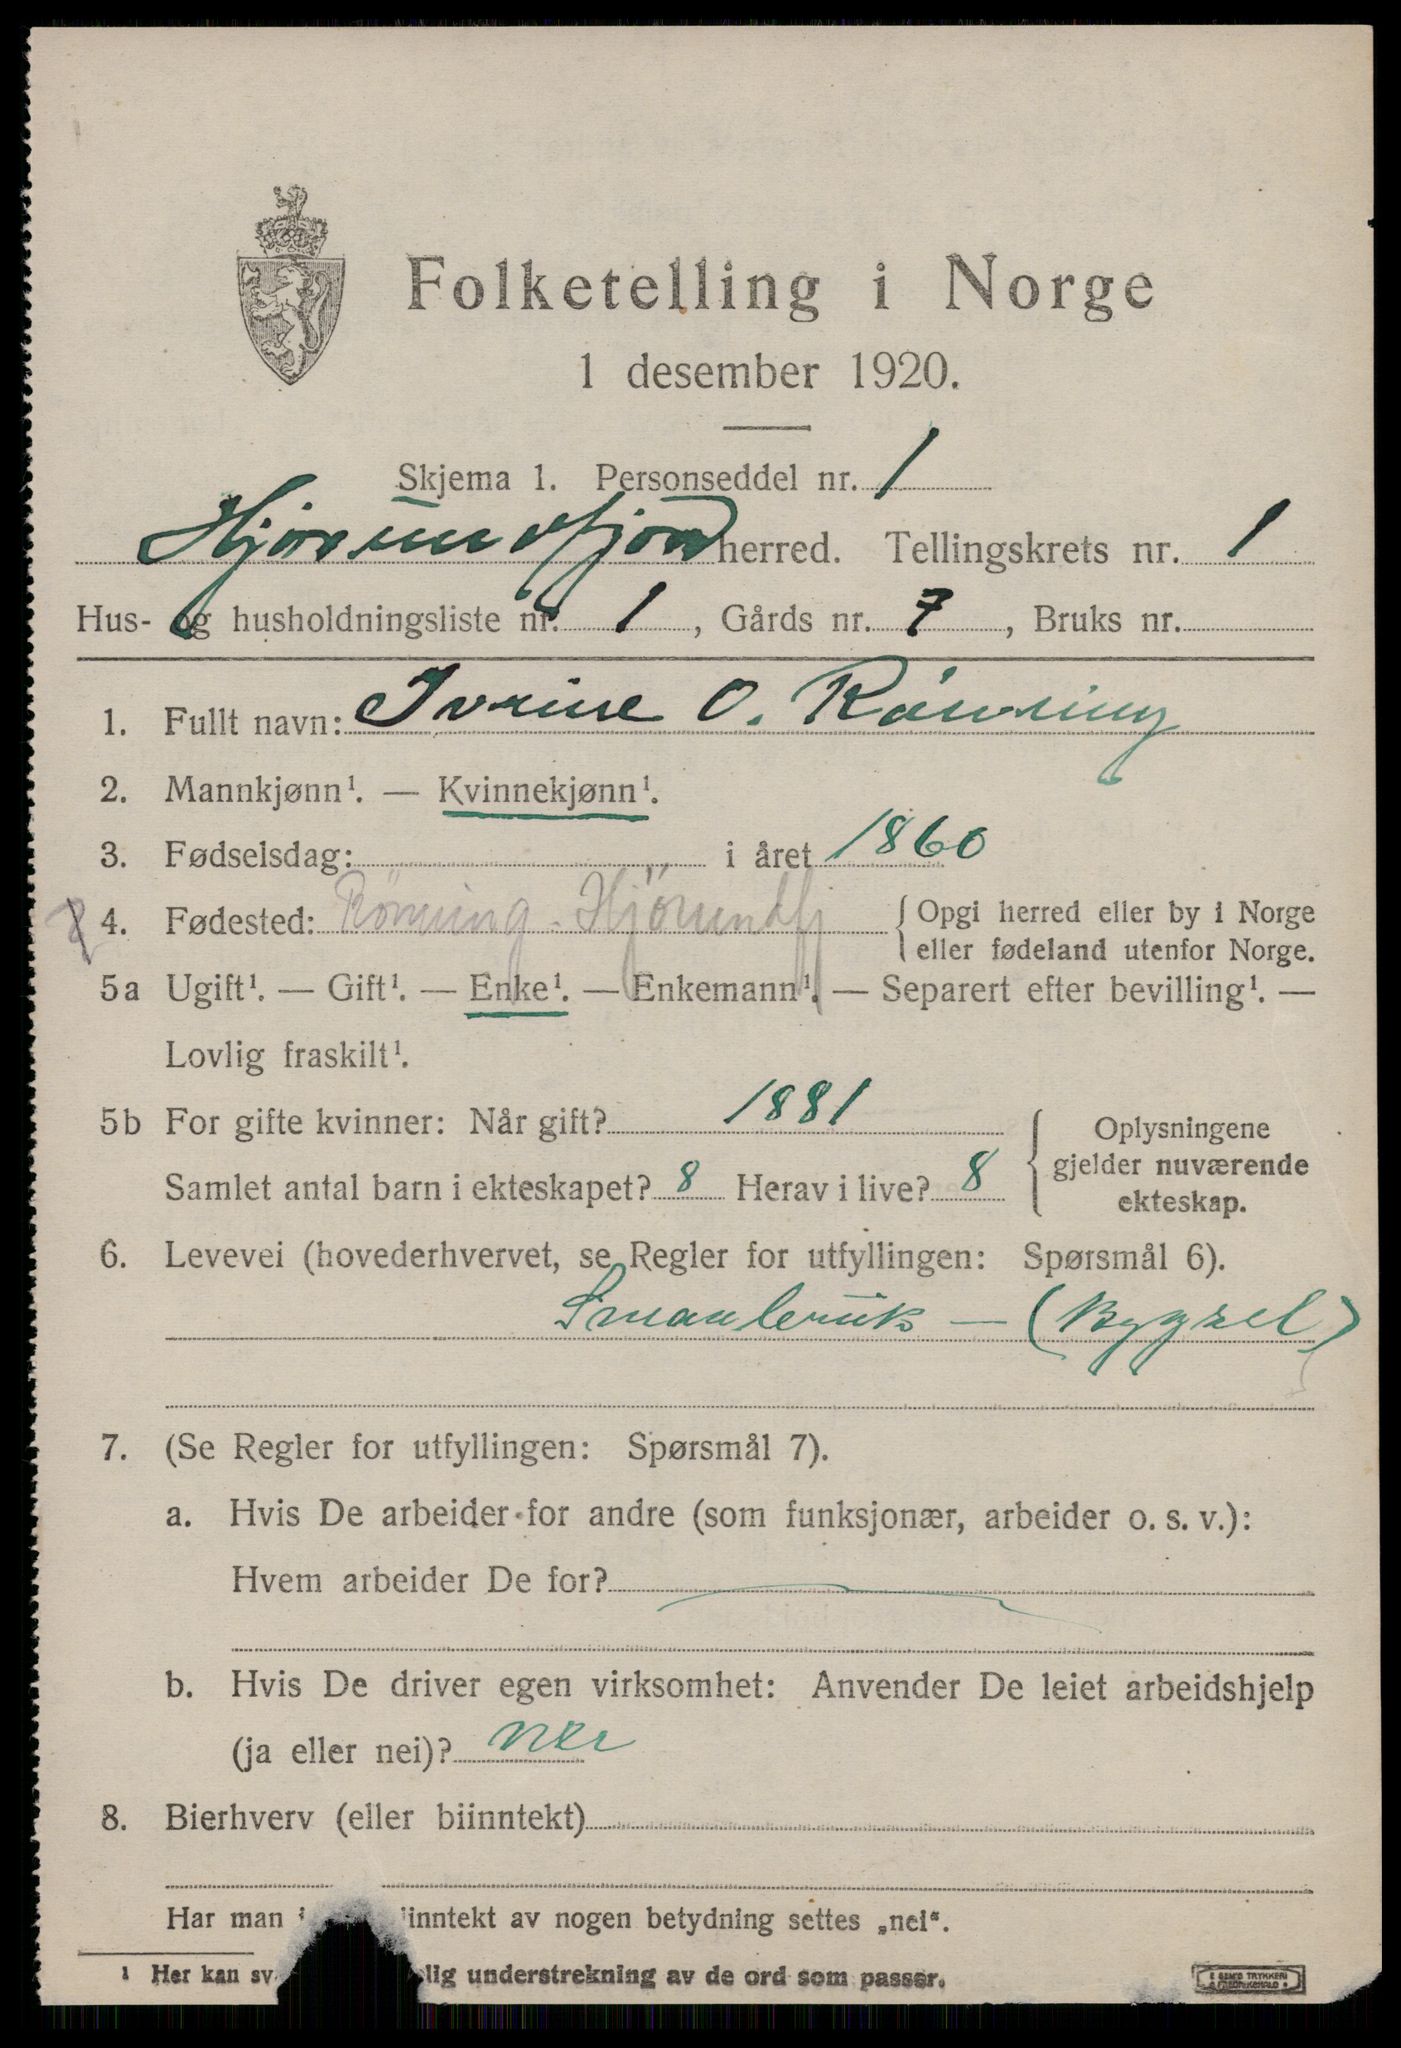 Folketelling i Norge
1 desember 1920.
Skjema 1. Personseddel nr. 1
Hjørundfjord herred. Tellingskrets nr. 1
Hus- og husholdningsliste nr. 1, Gårds nr. 7, Bruks nr.
1. Fullt navn: Ivrine O.
2. Mannkjønn¹. — Kvinnekjønn¹.
3. Fødselsdag: i året 1860
4. Fødested: Hjörundfj { Opgi herred eller by i Norge
eller fødeland utenfor Norge.
5a Ugift¹. — Gift¹. — Enke¹. — Enkemann¹. — Separert efter bevilling¹. —
Lovlig fraskilt¹.
5b For gifte kvinner: Når gift? 1881
Samlet antal barn i ekteskapet? 8 Herav i live? 8
Oplysningene
gjelder nuværende
ekteskap.
6. Levevei (hovederhvervet, se Regler for utfyllingen: Spørsmål 6).
Smaabruk — (Bygsel)
7. (Se Regler for utfyllingen: Spørsmål 7).
a. Hvis De arbeider for andre (som funksjonær, arbeider o. s. v.):
Hvem arbeider De for?
b. Hvis De driver egen virksomhet: Anvender De leiet arbeidshjelp
(ja eller nei)? nei
8. Bierhverv (eller biinntekt)
Har man i inntekt av nogen betydning settes „nei“.
¹ Her kan sv lig understrekning av de ord som passer.